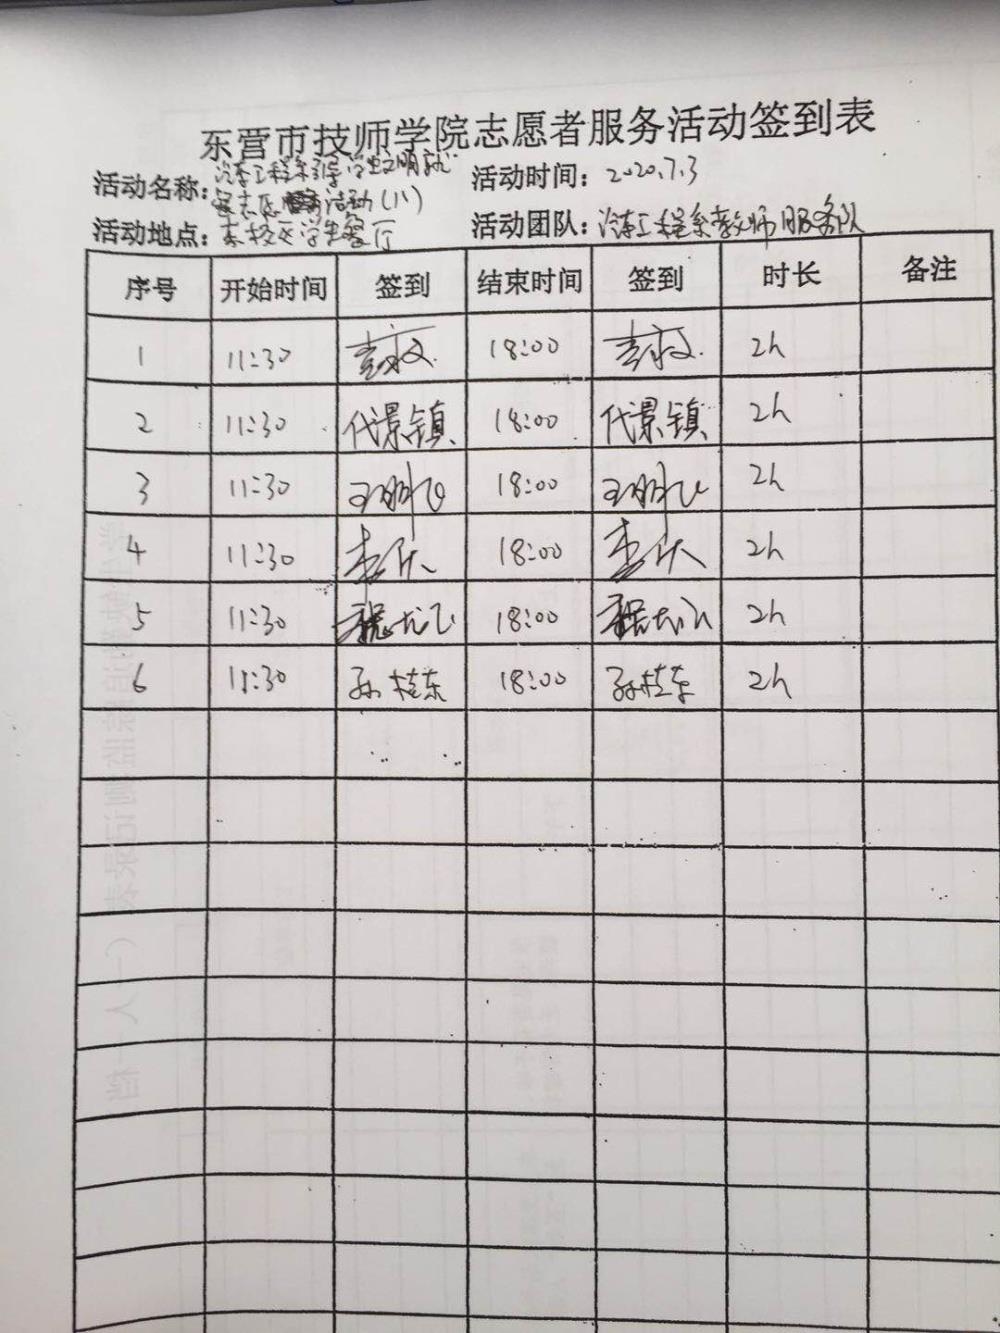 东营市技师学院志愿者服务活动签到表
活动名称：汽车工程系引导学生文明就
餐志愿服务活动（八）
活动时间：2020.7.3
活动地点：东校区学生餐厅
活动团队：汽车工程系教师服务队
序号 开始时间 签到 结束时间 签到 时长 备注
1 11:30 18:00 2h
2 11:30 代景镇 18:00 代景镇 2h
3 11:30 王鹏飞 18:00 王鹏飞 2h
4 11:30 18:00 2h
5 11:30 18:00 2h
6 11:30 孙桂东 18:00 孙桂东 2h